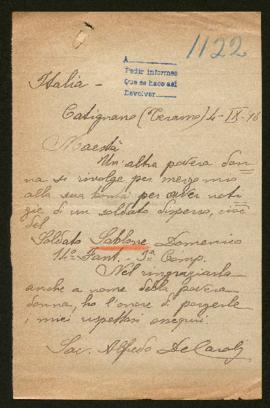 1122
A
Pedir informes
Que se hace así
Devolver
Italia -
Catignano (Teramo) 4-IX-16
Maestà
Un'altra povera don-
na si rivolge per mezzo mio
alla sua bontà per aver noti-
zie di un soldato disperso, cioè
del
Soldato Sablone Domenico
14° Fant. - 1ª Comp.
Nel ringraziarla
anche a nome della povera
donna, ho l'onore di porgerle
i miei rispettosi ossequi.
Sac. Alfredo De Carolis